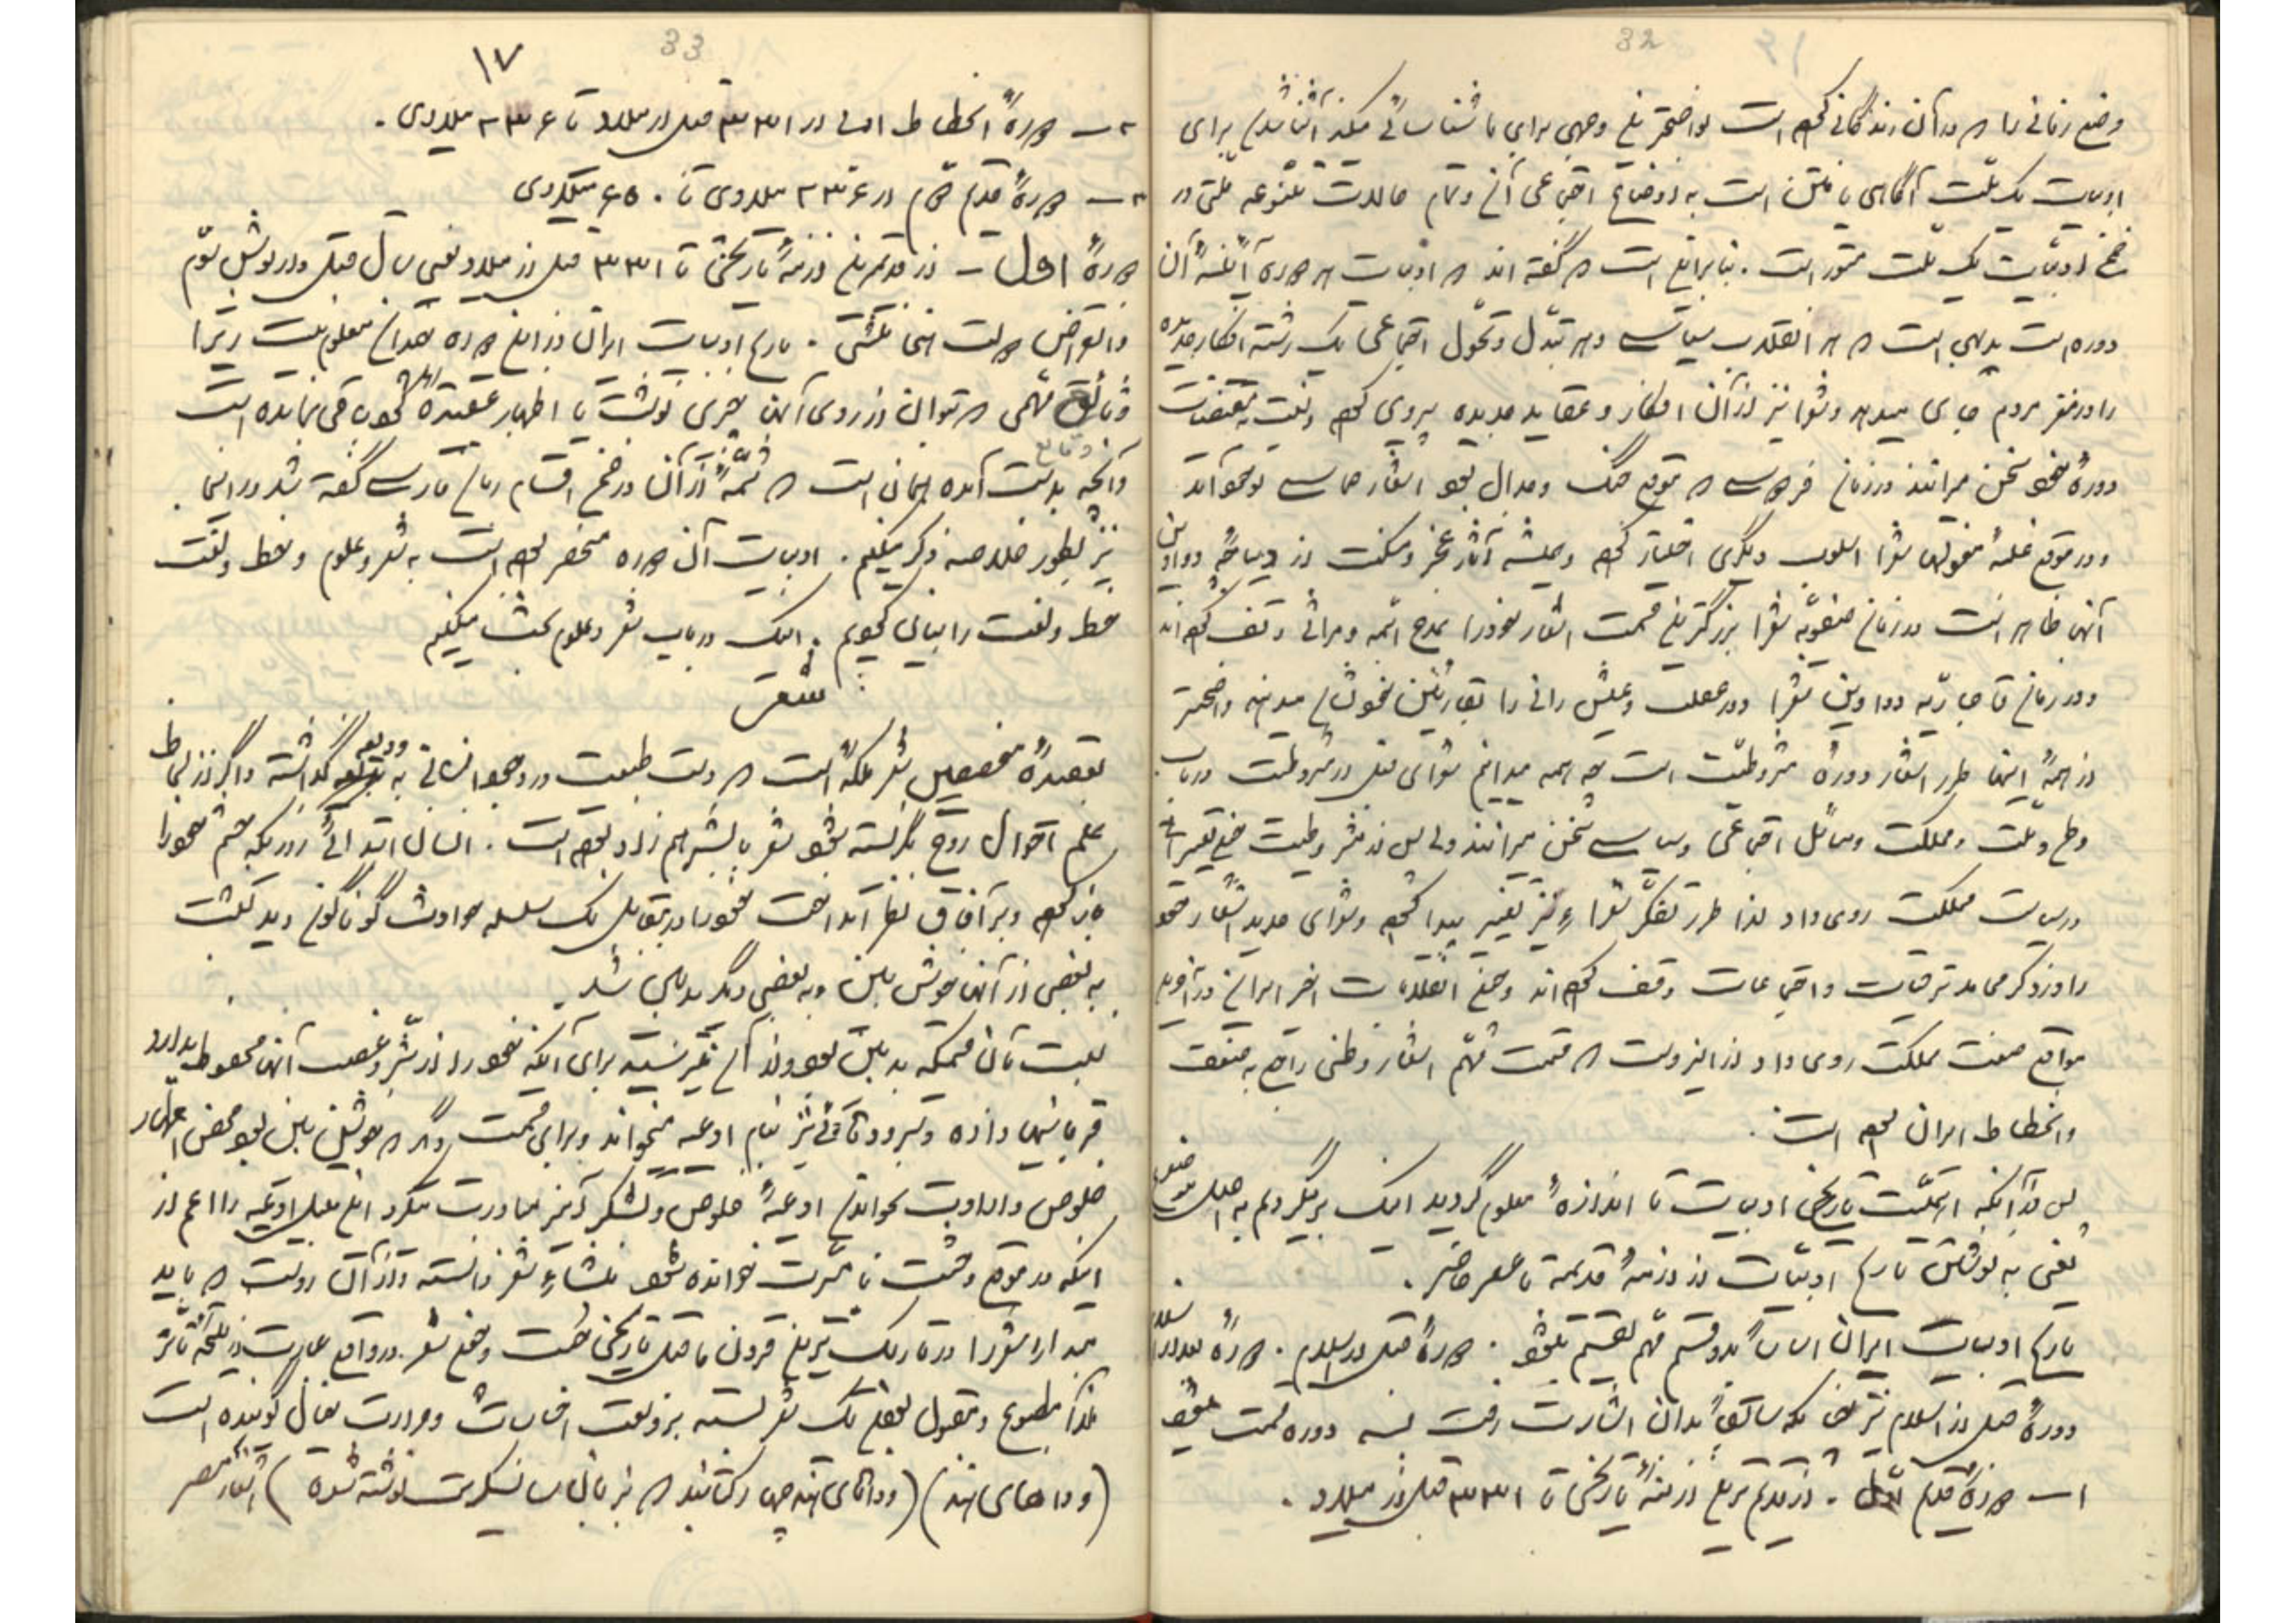 32
وضع زمانی را که در آن زندگانی کرده است بواضحترین وجهی برای ما شناسائی میکند آشنا شدن برای
ادبیات یک ملت آگاهی یافتن است به اوضاع اجتماعی آن و تمام حالات متنوعه ملتی در
ضمن ادبیات یک ملت مستور است. بنابراین است که گفته اند که ادبیات هر دوره آئینهٔ آن
دوره است بدیهی است که هر انقلاب سیاسی و هر تبدل و تحول اجتماعی یک رشته افکار جدیده
را در مغز مردم جای میدهد و شعرا نیز از آن افکار و عقاید جدیده پیروی کرده و بمقتضیات
دورهٔ خود سخن میرانند در زمان فردوسی که موقع جنگ و جدال بود اشعار حماسی بوجود آمد
و در موقع غلبهٔ مغولها شعرا اسلوب دیگری اختیار کرده و همیشه آثار عجز و مسکنت از دیباچهٔ دواوین
آنها ظاهر است در زمان صفویه شعرا بزرگترین قسمت اشعار خود را بمدح ائمه و مراثی وقف کرده اند
و در زمان قاجاریه دواوین شعرا دورهٔ عیش رانی را بقارئین خود نشان میدهد واضحتر
از همهٔ اینها طرز اشعار دورهٔ مشروطیت است چه همه میدانیم شعرای قبل از مشروطیت در باب
وطن و ملت و مملکت و مسائل اجتماعی و سیاسی سخن میراندند ولی پس از مشروطیت وضع تغییراتی
در سیاست مملکت روی داد لذا طرز تفکر شعراء نیز تغییر پیدا کرده و شعرای جدید اشعار خود
را در ذکر محامد ترقیات و اجتماعات وقف کرده اند وضع انقلابات اخیر ایران و در آخرین
مواقع ضعف مملکت روی داد از اینروست که قسمت مهم اشعار وطنی راجع به ضعف
و انحطاط ایران بوده است.
پس از آنکه اهمیت تاریخی ادبیات تا اندازهٔ معلوم گردید اینک برمیگردیم به اصل موضوع
یعنی به نوشتن تاریخ ادبیات از ازمنهٔ قدیمه تا عصر حاضر.
تاریخ ادبیات ایران اساساً بدو قسم مهم تقسیم میشود. دورهٔ قبل از اسلام. دورهٔ بعد از اسلام
دورهٔ قبل از اسلام نیز چنانکه سابقاً بدان اشارت رفت بسه دوره قسمت میشود
۱ـ دورهٔ قدیم اول. از قدیم ترین ازمنهٔ تاریخی تا ۳۳۱ قبل از میلاد.
33
۱۷
۲ـ دورهٔ انحطاط ادبی از ۳۳۱ قبل از میلاد تا ۲۲۶ میلادی.
۳ـ دورهٔ قدیم دوم از ۲۲۶ میلادی تا ۶۵۰ میلادی
دورهٔ اول ـ از قدیمترین ازمنهٔ تاریخی تا ۳۳۱ قبل از میلاد یعنی سال قتل داریوش سوم
و انقراض دولت هخامنشی. تاریخ ادبیات ایران در این دوره چندان معلوم نیست زیرا
وثائق مهمی که بتوان از روی آنها چیزی نوشت یا اظهار عقیده نمود باقی نمانده است
و آنچه بدست آمده همان است که شمهٔ از آن در ضمن اقسام زبان فارسی گفته شد در اینجا
نیز بطور خلاصه ذکر میکنیم. ادبیات آن دوره منحصر بوده است به شعر و علوم و خط و لغت
خط و لغت را بیان کردیم. اینک در باب شعر و علوم بحث میکنیم
شعر
بعقیدهٔ محققین شعر ملکهٔ است که دست طبیعت در وجود انسانی به ودیعه گذاشته و اگر از لحاظ
علم احوال روح نگریسته شود شعر با بشر هم زاد بوده است. انسان ابتدائی از روزیکه چشم خود را
باز کرده و بر آفاق نظر انداخت خود را در مقابل یک سلسله حوادث گوناگون دید که نسبت
به بعضی از آنها خوش بین و به بعضی دیگر بدبین شد.
نسبت بآن قسمتیکه بدبین بود و از آن میترسید برای آنکه خود را از شر و غضب آنها محفوظ بدارد
قربانیها داده و سرودهائی نیز بنام ادعیه میخواند و برای قسمت دیگر که خوشبین بود محض اظهار
خلوص و ارادت بخواندن ادعیهٔ خلوص و تشکر آمیز مبادرت میکرد این قبیل ادعیه را اعم از
اینکه در موقع وحشت یا مسرت خوانده شود منشاء شعر دانسته و از آن روست که باید
مبداء شعر را در تاریک ترین قرون ماقبل تاریخی جست وضع شعر در واقع عبارت از نتیجه تأثر
لذا مطبوع و مقبول بودن یک شعر بسته بر وسعت احساسات و حرارت خیال گوینده است
(وداهای هند) (وداهای هند چهار کتابند که بزبان سانسکریت نوشته شده) اشعار مصر